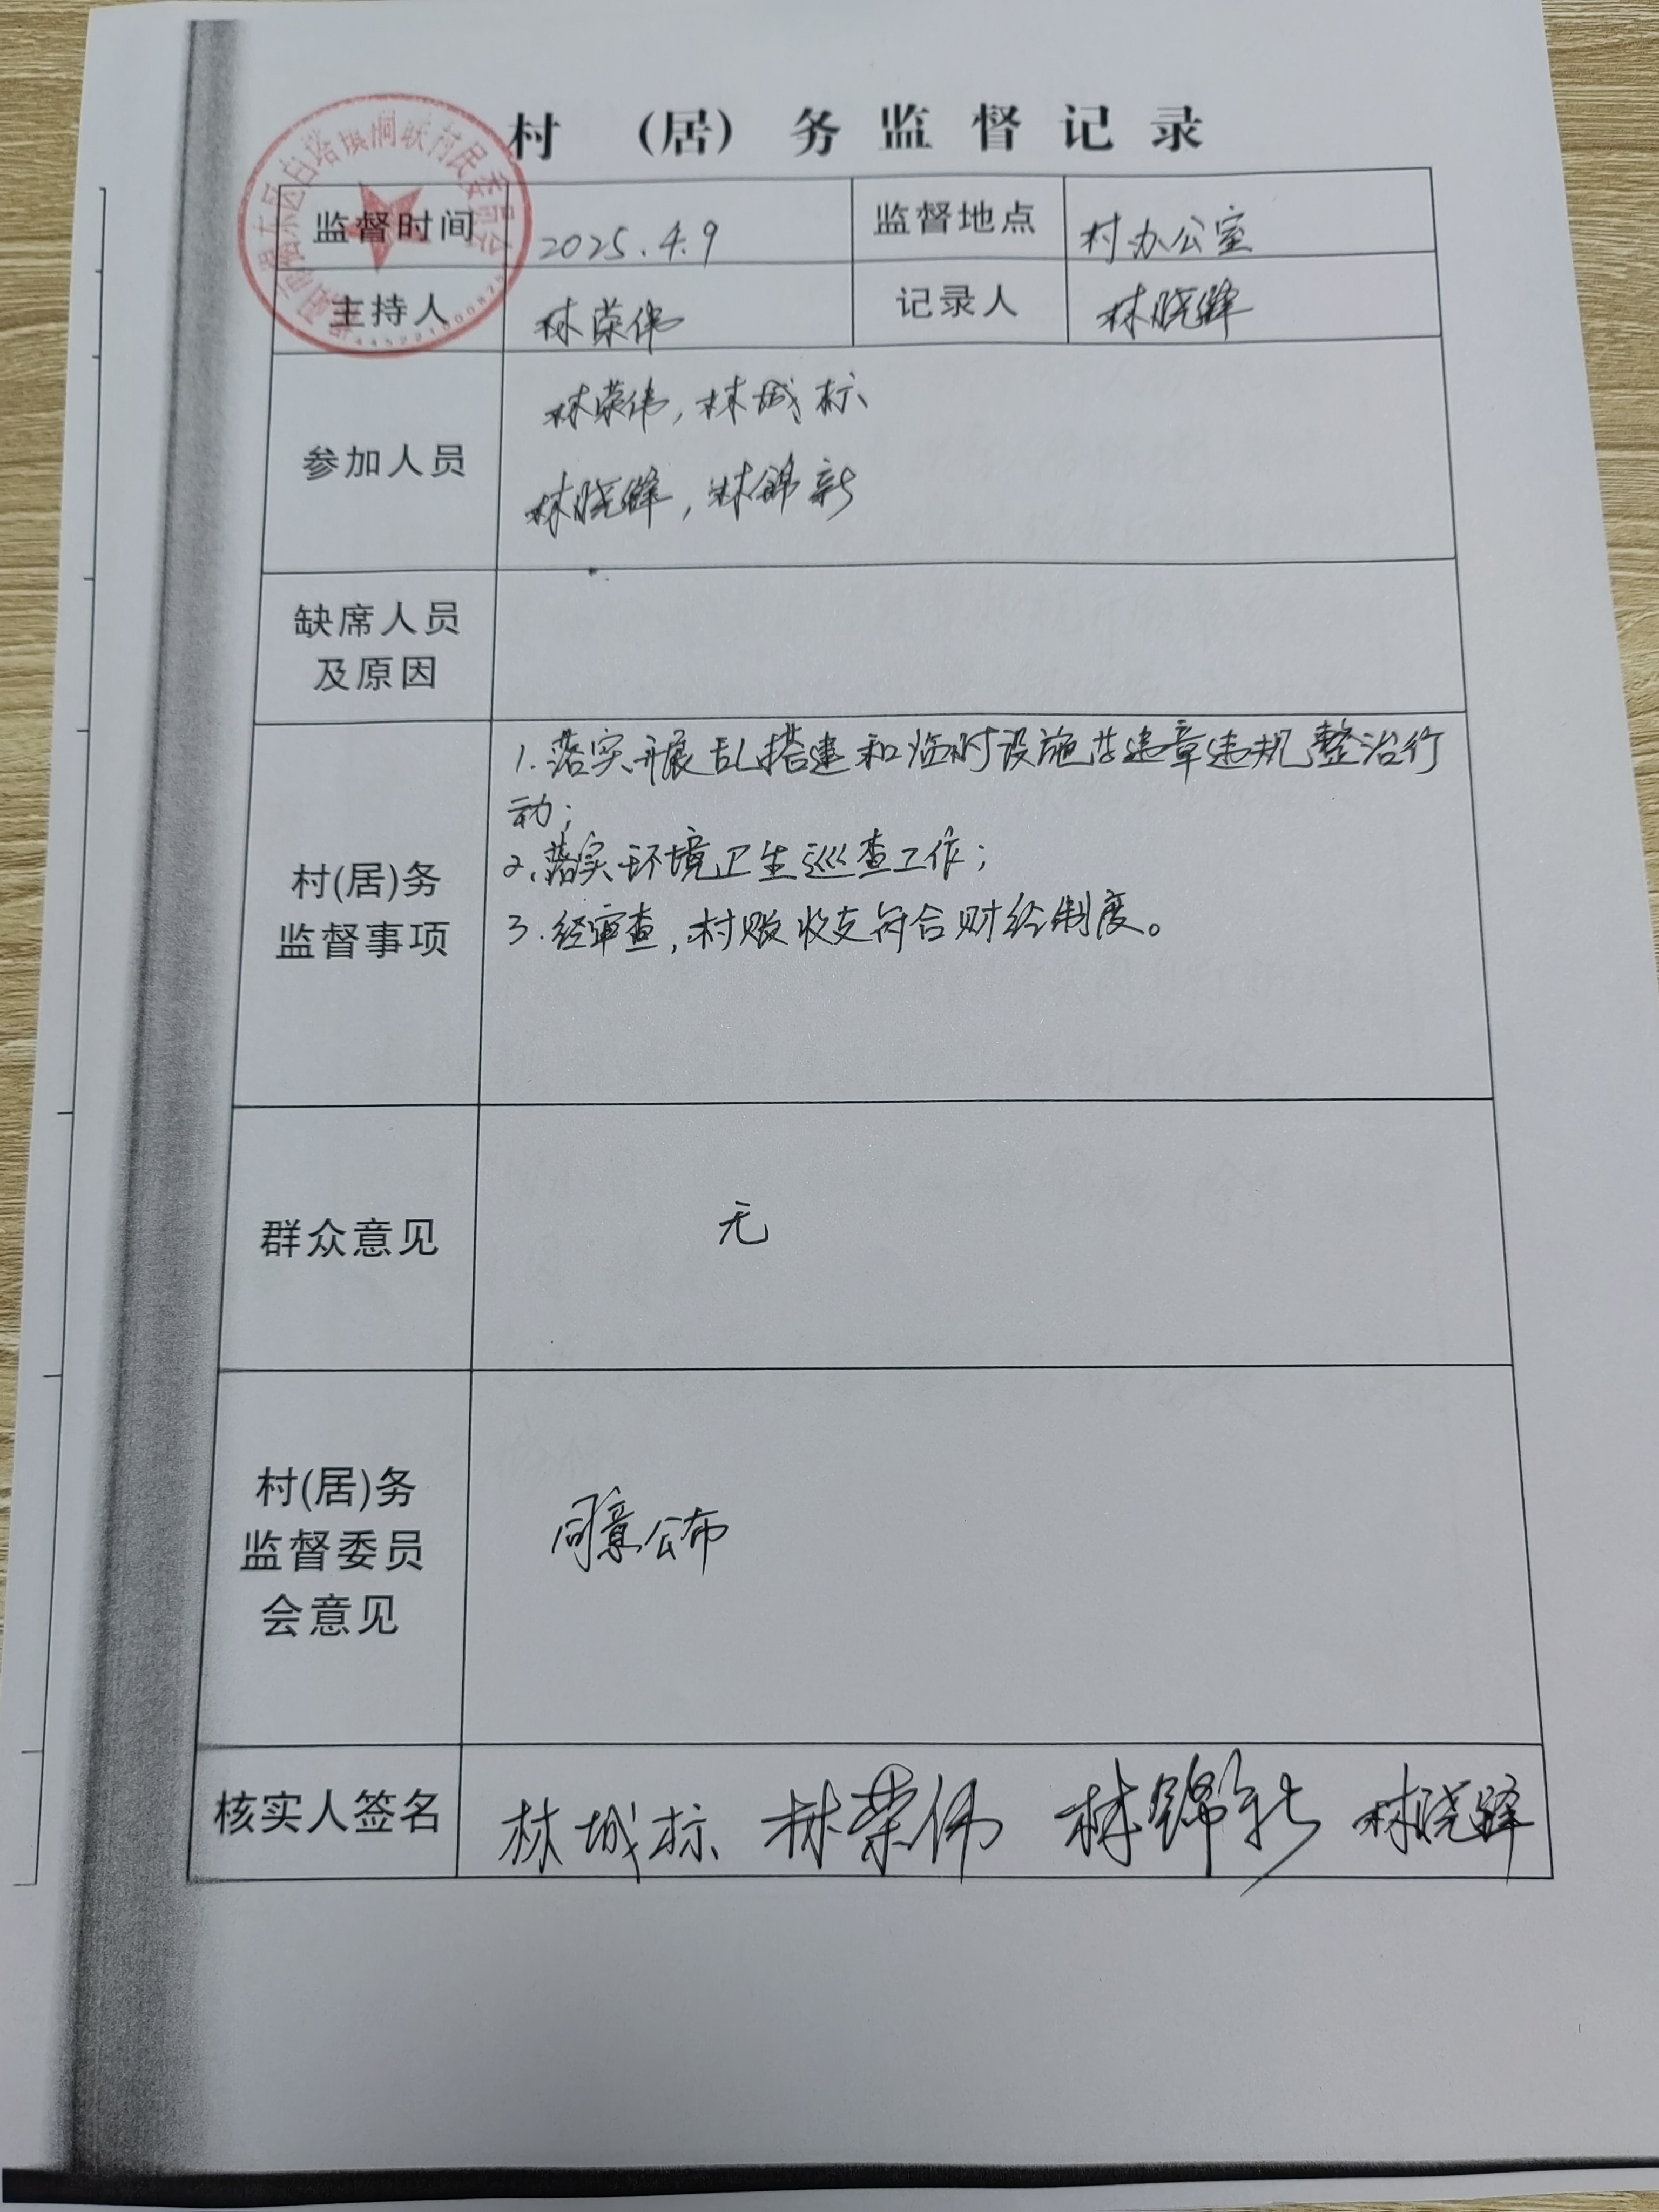 村 （居） 务 监 督 记 录
监督时间 2025.4.9 监督地点 村办公室
主持人 林荣伟 记录人 林晓锋
参加人员
林荣伟，林城标
林晓锋，林锦新
缺席人员
及原因
1.落实开展乱搭建和临时设施等违章违规整治行
动；
2.落实环境卫生巡查工作；
3.经审查，村账收支符合财经制度。
村(居)务
监督事项
群众意见 无
村(居)务
监督委员
会意见
同意公布
核实人签名 林城标 林荣伟 林锦新 林晓锋